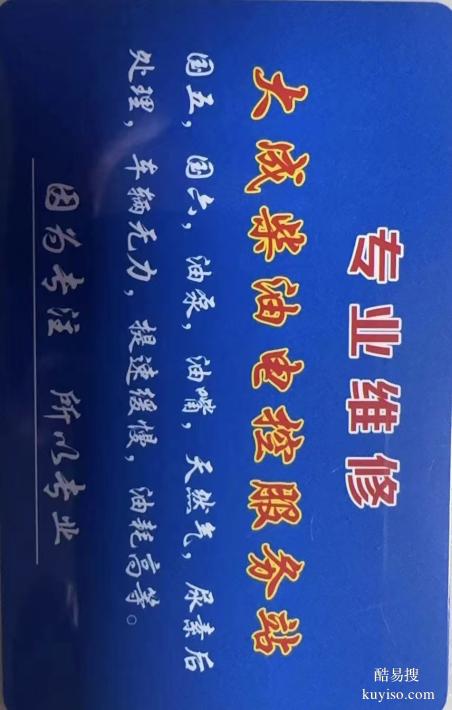 专业维修
大成柴油电控服务站
国五，国六，油泵，油嘴，天然气，尿素后
处理，车辆无力，提速缓慢，油耗高等。
因为专注 所以专业
酷易搜
kuyiso.com